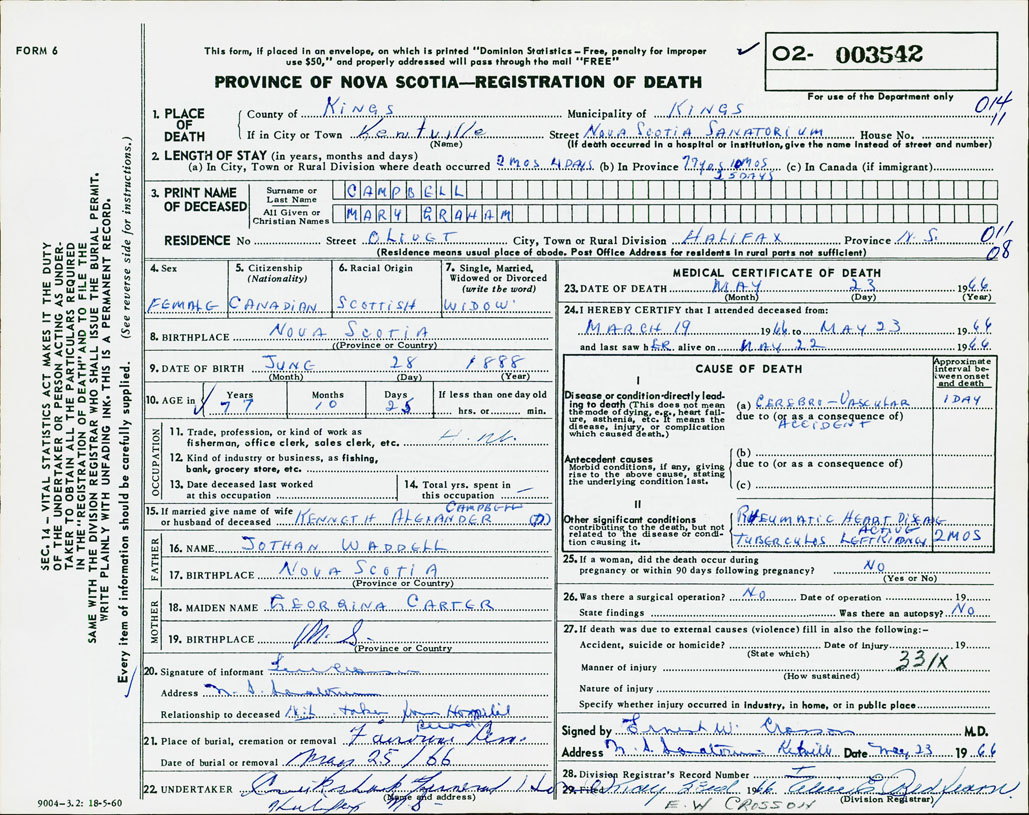 FORM 6
This form, if placed in an envelope, on which is printed "Dominion Statistics – Free, penalty for improper
use $50," and properly addressed will pass through the mail "FREE"
✓ O2- 003542
PROVINCE OF NOVA SCOTIA—REGISTRATION OF DEATH
For use of the Department only
014
11
1. PLACE OF DEATH
County of Kings Municipality of KINGS
If in City or Town Kentville Street NOVA SCOTIA SANATORIUM House No.
(Name) (If death occurred in a hospital or institution, give the name instead of street and number)
2. LENGTH OF STAY (in years, months and days)
(a) In City, Town or Rural Division where death occurred 2 MOS 4 DAYS (b) In Province 77 yrs 10 MOS (c) In Canada (if immigrant)
25 DAYS
3. PRINT NAME OF DECEASED
Surname or Last Name CAMPBELL
All Given or Christian Names MARY GRAHAM
RESIDENCE No Street OLIVET City, Town or Rural Division HALIFAX Province N.S.
011
08
(Residence means usual place of abode. Post Office Address for residents in rural parts not sufficient)
4. Sex FEMALE
5. Citizenship (Nationality) CANADIAN
6. Racial Origin SCOTTISH
7. Single, Married, Widowed or Divorced (write the word) WIDOW
8. BIRTHPLACE NOVA SCOTIA
((Province or Country)
9. DATE OF BIRTH JUNE 28 1888
(Month) (Day) (Year)
10. AGE in ✓ Years 77 Months 10 Days 25 If less than one day old
hrs. or min.
OCCUPATION
11. Trade, profession, or kind of work as
fisherman, office clerk, sales clerk, etc. H.W.
12. Kind of industry or business, as fishing,
bank, grocery store, etc.
13. Date deceased last worked
at this occupation
14. Total yrs. spent in
this occupation —
15. If married give name of wife
or husband of deceased KENNETH ALEXANDER CAMPBELL (D)
FATHER
16. NAME JOTHAN WADDELL
17. BIRTHPLACE NOVA SCOTIA
(Province or Country)
MOTHER
18. MAIDEN NAME GEORGINA CARTER
19. BIRTHPLACE N. S.
(Province or Country)
20. Signature of informant
Address N. S. Sanatorium
Relationship to deceased Nil taken from Hospital
Records
21. Place of burial, cremation or removal Fairview Cem.
Date of burial or removal May 25/66
22. UNDERTAKER Cruikshank Funeral Home
(Name and address)
Halifax NS
9004–3.2: 18-5-60
MEDICAL CERTIFICATE OF DEATH
23. DATE OF DEATH MAY 23 1966
(Month) (Day) (Year)
24. I HEREBY CERTIFY that I attended deceased from:
MARCH 19 1966 to MAY 23 1966
and last saw hER alive on MAY 22 1966
CAUSE OF DEATH
Approximate interval between onset and death
I
Disease or condition directly leading to death (This does not mean the mode of dying, e.g., heart failure, asthenia, etc. It means the disease, injury, or complication which caused death.)
(a) CEREBRO-VASCULAR 1 DAY
due to (or as a consequence of)
ACCIDENT
Antecedent causes
Morbid conditions, if any, giving rise to the above cause, stating the underlying condition last.
(b)
due to (or as a consequence of)
(c)
II
Other significant conditions
contributing to the death, but not related to the disease or condition causing it.
RHEUMATIC HEART DISEASE
ACTIVE
TUBERCULOS LEFT KIDNEY 2 MOS
25. If a woman, did the death occur during
pregnancy or within 90 days following pregnancy? NO
(Yes or No)
26. Was there a surgical operation? NO Date of operation 19
State findings Was there an autopsy? NO
27. If death was due to external causes (violence) fill in also the following:–
Accident, suicide or homicide? Date of injury 19
(State which)
331X
Manner of injury
(How sustained)
Nature of injury
Specify whether injury occurred in industry, in home, or in public place
Signed by Ernest W. Crosson M.D.
Address N. S. Sanatorium Kentville Date May 23 1966
28. Division Registrar's Record Number
29. Filed May 23rd 1966
(Division Registrar)
E. W CROSSON
SEC. 14 – VITAL STATISTICS ACT MAKES IT THE DUTY
OF THE UNDERTAKER OR PERSON ACTING AS UNDER-
TAKER TO OBTAIN ALL THE PARTICULARS REQUIRED
IN THE "REGISTRATION OF DEATH" AND TO FILE THE
SAME WITH THE DIVISION REGISTRAR WHO SHALL ISSUE THE BURIAL PERMIT.
WRITE PLAINLY WITH UNFADING INK. THIS IS A PERMANENT RECORD.
Every item of information should be carefully supplied. (See reverse side for instructions.)